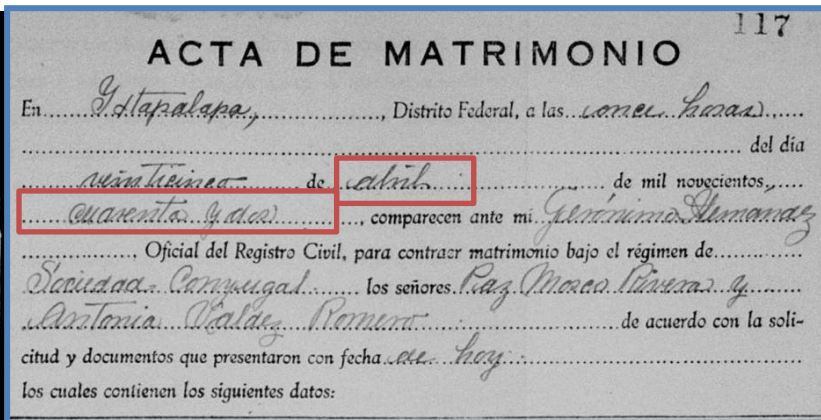 117
ACTA DE MATRIMONIO
En Ixtapalapa, , Distrito Federal, a las once horas,
del día
veinticinco de abril de mil novecientos,
cuarenta y dos , comparecen ante mi Gerónimo Hernandez
, Oficial del Registro Civil, para contraer matrimonio bajo el régimen de
Sociedad Conyugal los señores Paz Mosco Rivera y
Antonia Valdez Romero de acuerdo con la soli-
citud y documentos que presentaron con fecha de hoy
los cuales contienen los siguientes datos: